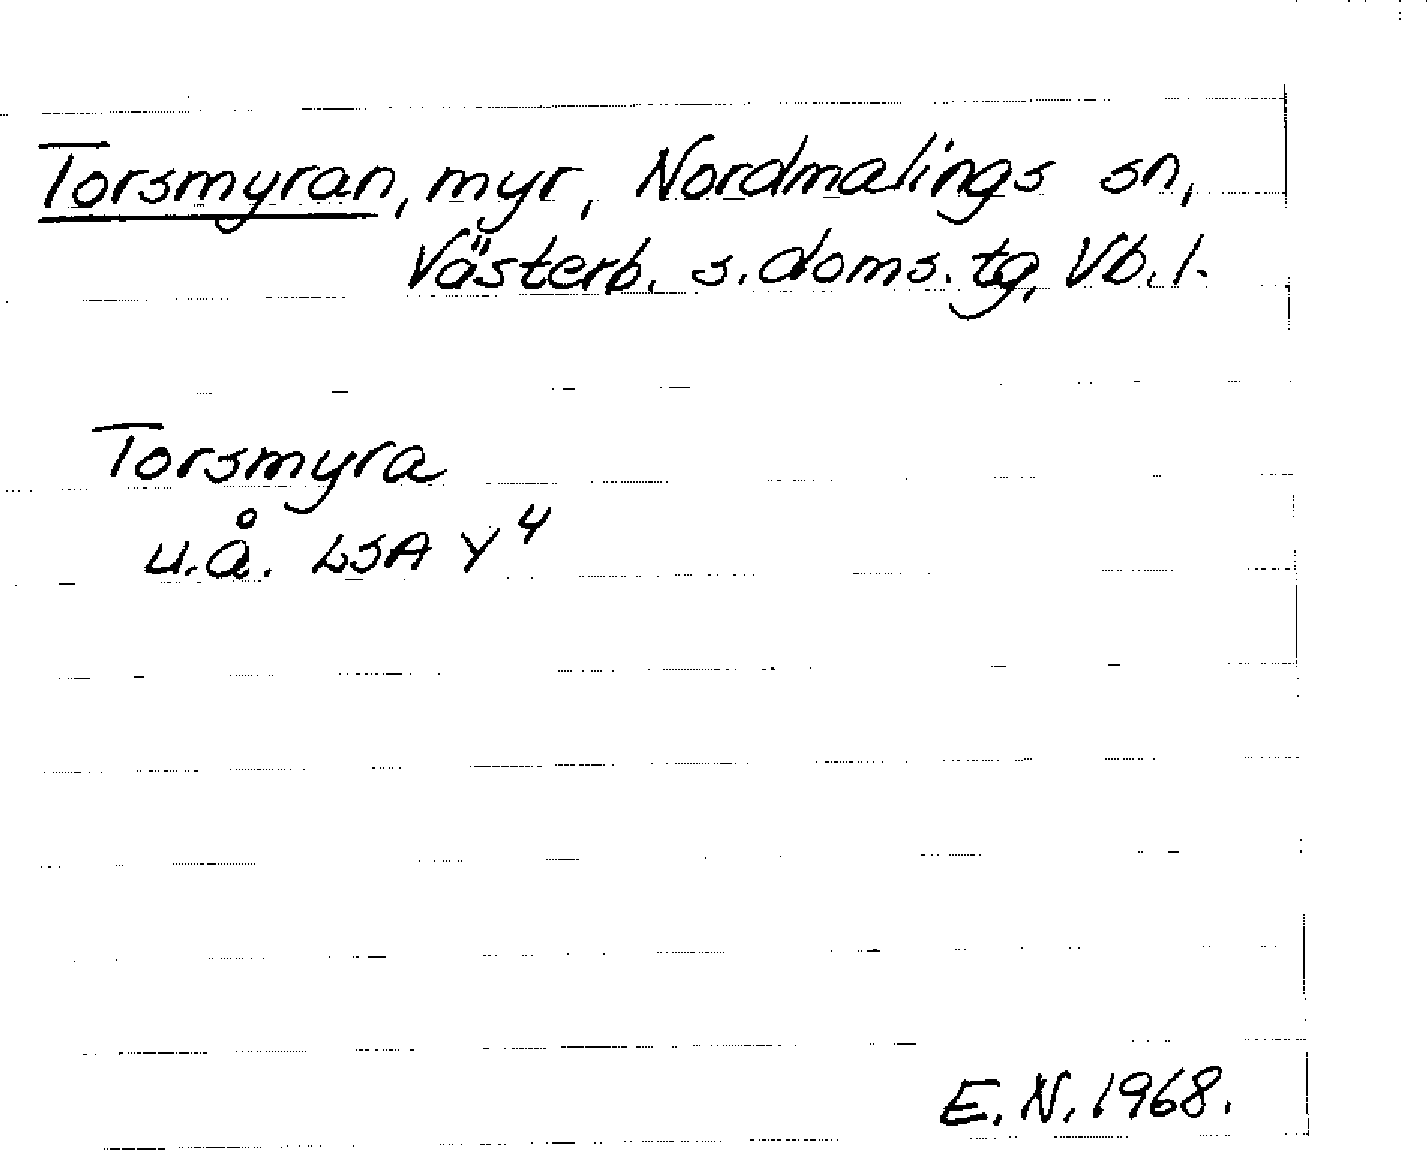 Torsmyran, myr, Nordmalings sn,
Västerb. s. doms. tg, Vb. l.
Torsmyra
u.å. LSA Y 4
E. N. 1968.